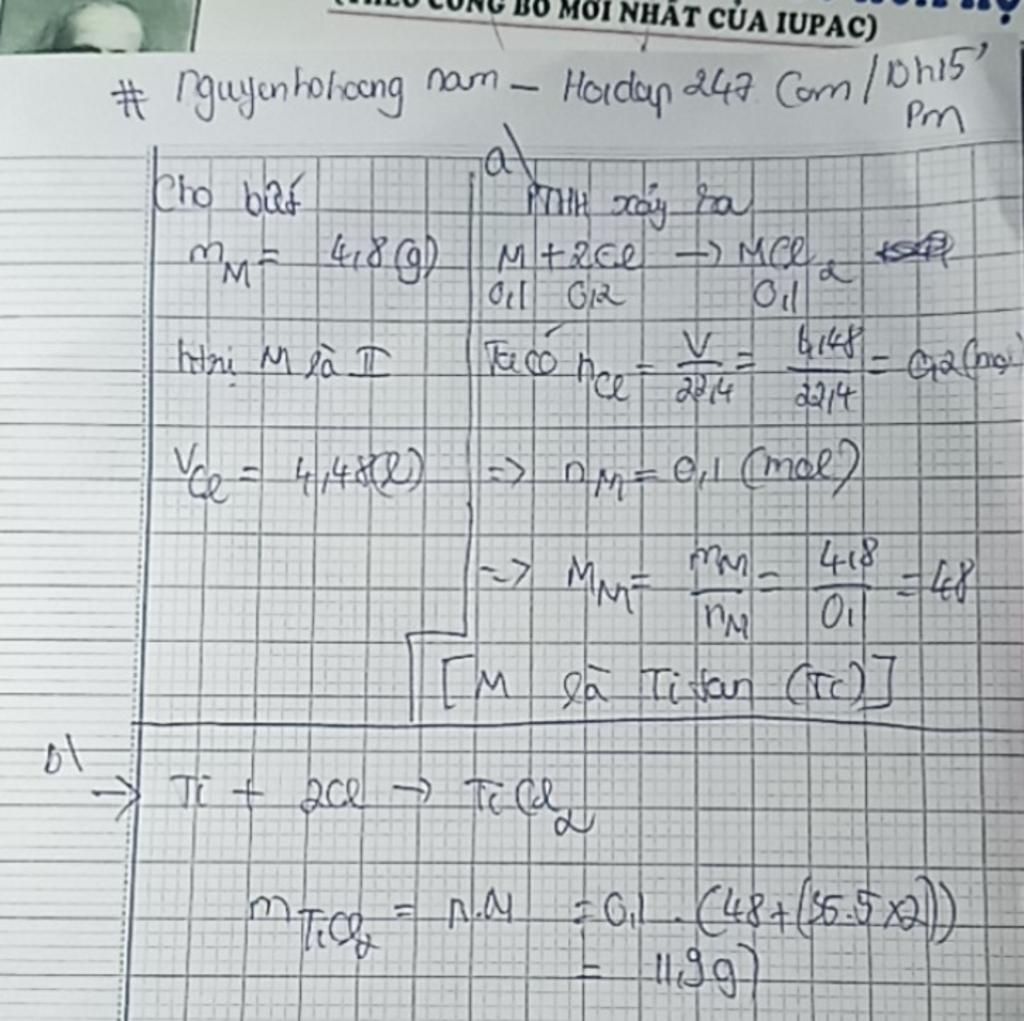 (THEO CÔNG BỐ MỚI NHẤT CỦA IUPAC)
# Nguyenhohoang nam – Hoidap 247 Com / 10h15'
Pm
Cho biết
m_M = 4,8 (g)
Htrị M là II
V_Cl = 4,48(l)
a)
PTHH xảy ra
M + 2Cl → MCl₂
0,1 0,2 0,1
Ta có n_Cl = V/22,4 = 4,48/22,4 = 0,2 (mol)
=> n_M = 0,1 (mol)
=> M_M = m_M/n_M = 4,8/0,1 = 48
[M là Titan (Ti)]
b)
→ Ti + 2Cl → TiCl₂
m_TiCl₂ = n.M = 0,1 . (48 + (35.5 x 2))
= 11,9 g)